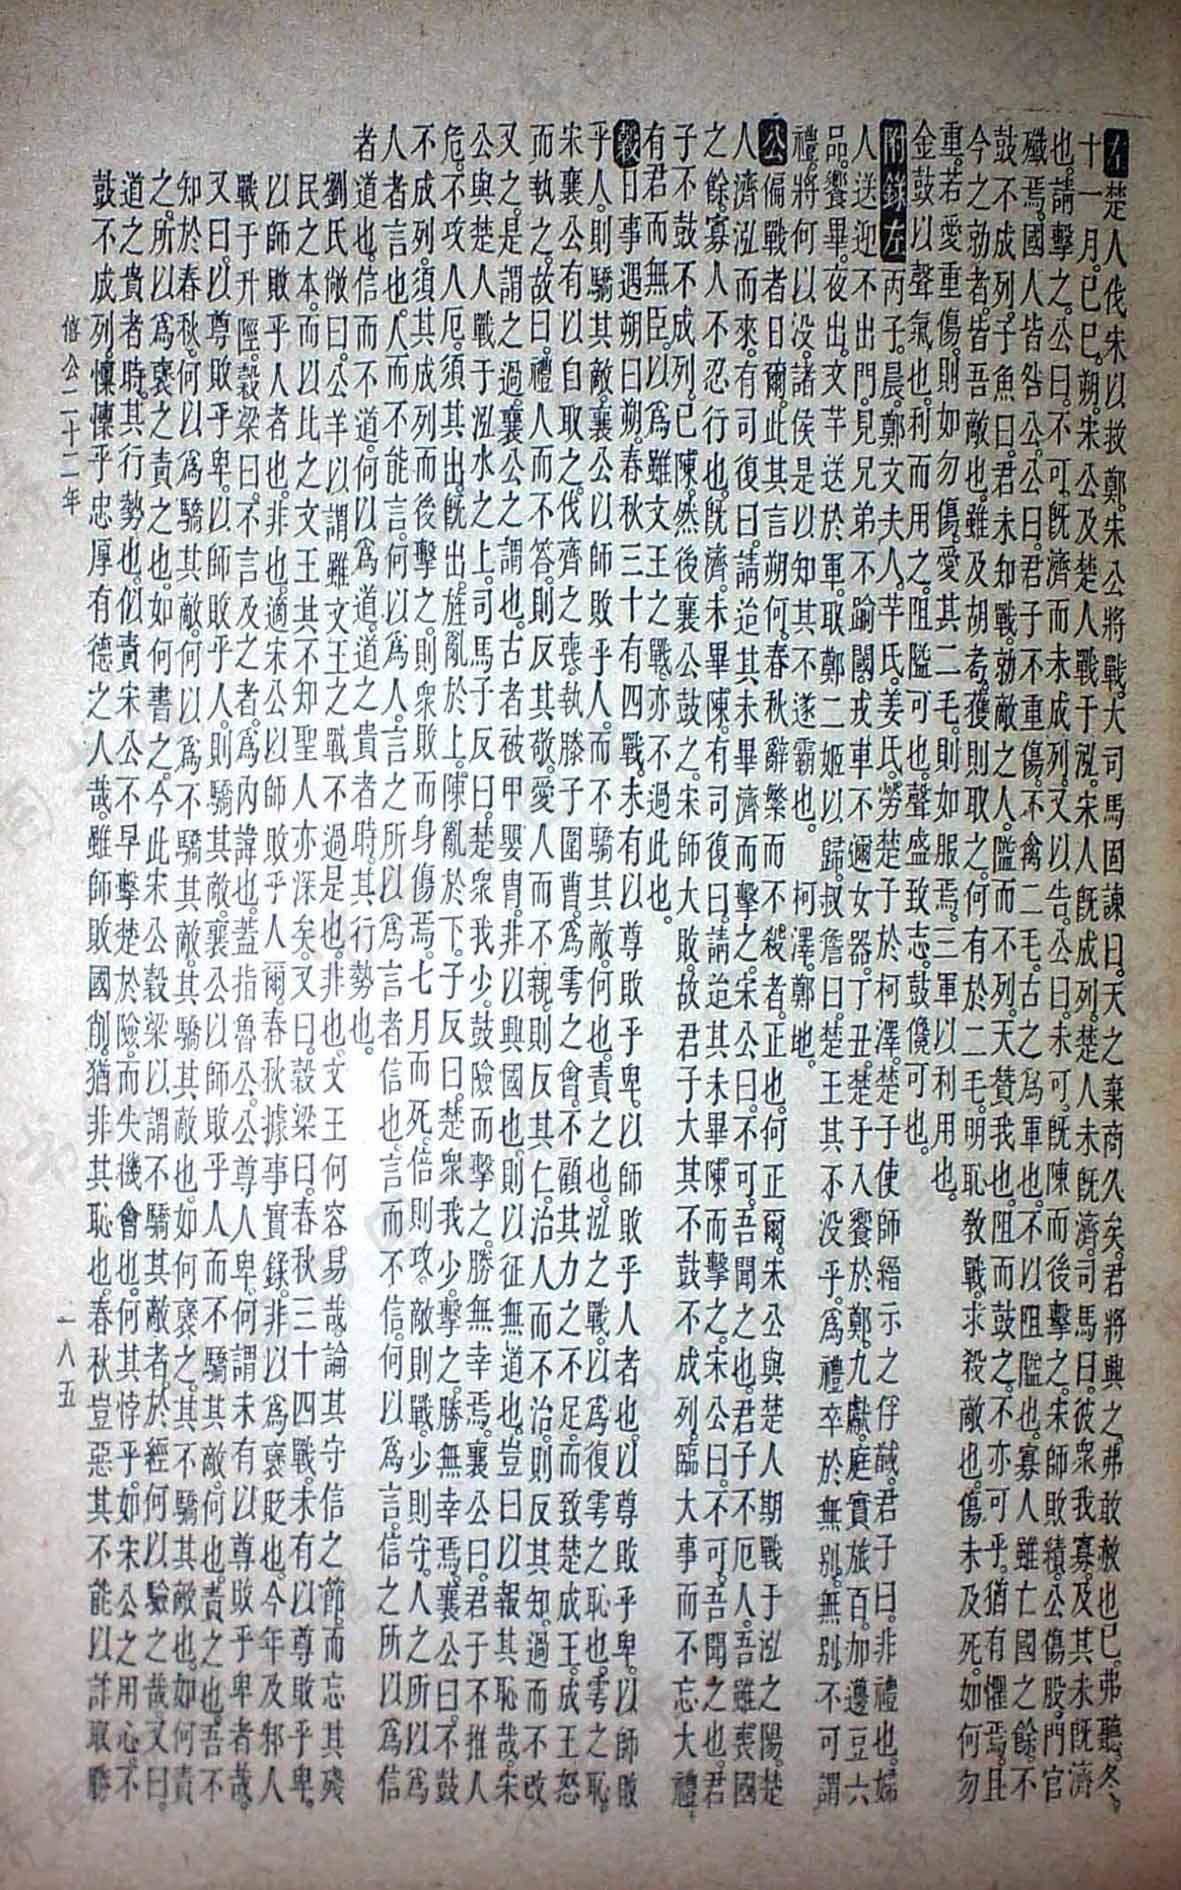 左楚人伐宋以救鄭。宋公將戰。大司馬固諫曰。天之棄商久矣。君將興之。弗敢赦也已。弗聽。冬、
十一月。己巳。朔。宋公及楚人戰于泓。宋人既成列。楚人未既濟。司馬曰。彼眾我寡。及其未既濟
也。請擊之。公曰。不可。既濟而未成列。又以告。公曰。未可。既陳而後擊之。宋師敗績。公傷股。門官
殲焉。國人皆咎公。公曰。君子不重傷。不禽二毛。古之為軍也。不以阻隘也。寡人雖亡國之餘。不
鼓不成列。子魚曰。君未知戰。勍敵之人。隘而不列。天贊我也。阻而鼓之。不亦可乎。猶有懼焉。且
今之勍者。皆吾敵也。雖及胡耇。獲則取之。何有於二毛。明恥教戰。求殺敵也。傷未及死。如何勿
重。若愛重傷。則如勿傷。愛其二毛。則如服焉。三軍以利用也。
金鼓以聲氣也。利而用之。阻隘可也。聲盛致志。鼓儳可也。
附錄左丙子。晨。鄭文夫人。芊氏。姜氏。勞楚子於柯澤。楚子使師縉示之俘馘。君子曰。非禮也。婦
人送迎不出門。見兄弟不踰閾。戎車不邇女器。丁丑。楚子入饗於鄭。九獻。庭實旅百。加籩豆六
品。饗畢。夜出。文芊送於軍。取鄭二姬以歸。叔詹曰。楚王其不没乎。為禮卒於無別。無別。不可謂
禮。將何以没。諸侯是以知其不遂霸也。　柯澤。鄭地。
公偏戰者日爾。此其言朔何。春秋辭繁而不殺者。正也。何正爾。宋公與楚人期戰于泓之陽。楚
人濟泓而來。有司復曰。請迨其未畢濟而擊之。宋公曰。不可。吾聞之也。君子不厄人。吾雖喪國
之餘。寡人不忍行也。既濟。未畢陳。有司復曰。請迨其未畢陳而擊之。宋公曰。不可。吾聞之也。君
子不鼓不成列。已陳。然後襄公鼓之。宋師大敗。故君子大其不鼓不成列。臨大事而不忘大禮。
有君而無臣。以為雖文王之戰。亦不過此也。
穀日事遇朔曰朔。春秋三十有四戰。未有以尊敗乎卑。以師敗乎人者也。以尊敗乎卑。以師敗
乎人。則驕其敵。襄公以師敗乎人。而不驕其敵。何也。責之也。泓之戰。以為復雩之恥也。雩之恥。
宋襄公有以自取之。伐齊之喪。執滕子。圍曹。為雩之會。不顧其力之不足。而致楚成王。成王怒
而執之。故曰。禮人而不答。則反其敬。愛人而不親。則反其仁。治人而不治。則反其知。過而不改。
又之。是謂之過。襄公之謂也。古者被甲嬰冑。非以興國也。則以征無道也。豈曰以報其恥哉。宋
公與楚人戰于泓水之上。司馬子反曰。楚眾我少。鼓險而擊之。勝無幸焉。襄公曰。君子不推人
危。不攻人厄。須其出。既出。旌亂於上。陳亂於下。子反曰。楚眾我少。擊之。勝無幸焉。襄公曰。不鼓
不成列。須其成列而後擊之。則眾敗而身傷焉。七月而死。倍則攻。敵則戰。少則守。人之所以為
人者言也。人而不能言。何以為人。言之所以為言者信也。言而不信。何以為言。信之所以為信
者道也。信而不道。何以為道。道之貴者時。其行勢也。
劉氏敞曰。公羊以謂雖文王之戰不過是也。非也。文王何容易哉。論其守信之節。而忘其殘
民之本。而以比之文王。其不知聖人亦深矣。又曰。穀梁曰。春秋三十四戰。未有以尊敗乎卑。
以師敗乎人者也。非也。適宋公以師敗乎人爾。春秋據事實錄。非以為褒貶也。今年及邾人
戰于升陘。穀梁曰。不言及之者。為內諱也。蓋指魯公。公尊人卑。何謂未有以尊敗乎卑者哉。
又曰。以尊敗乎卑。以師敗乎人。則驕其敵。襄公以師敗乎人。而不驕其敵。何也。責之也。吾不
知於春秋。何以為驕其敵。何以為不驕其敵。其驕其敵也。如何褒之。其不驕其敵也。如何責
之。所以為褒之責之也。如何書之。今此宋公。穀梁以謂不驕其敵者。於經何以驗之哉。又曰。
道之貴者時。其行勢也。似責宋公不早擊楚於險。而失機會也。何其悖乎。如宋公之用心。不
鼓不成列。慺慺乎忠厚有德之人哉。雖師敗國削。猶非其恥也。春秋豈惡其不能以詐取勝
僖公二十二年　一八五